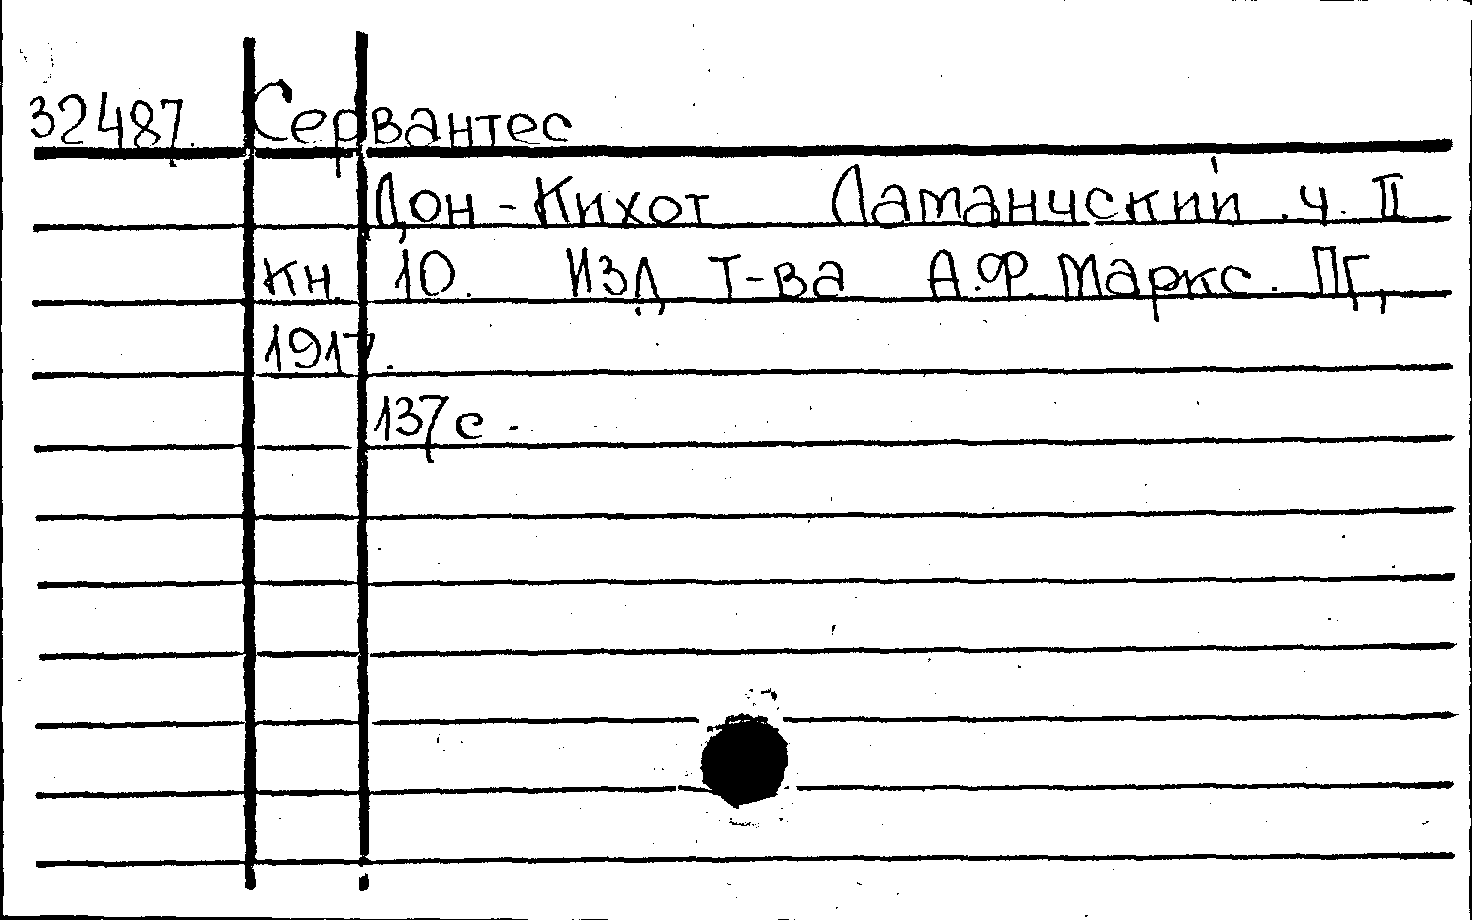 32487. Сервантес
Дон-Кихот Ламанчский. ч. II
кн. 10. Изд Т-ва А.Ф. Маркс. ПГ,
1917.
137 с.